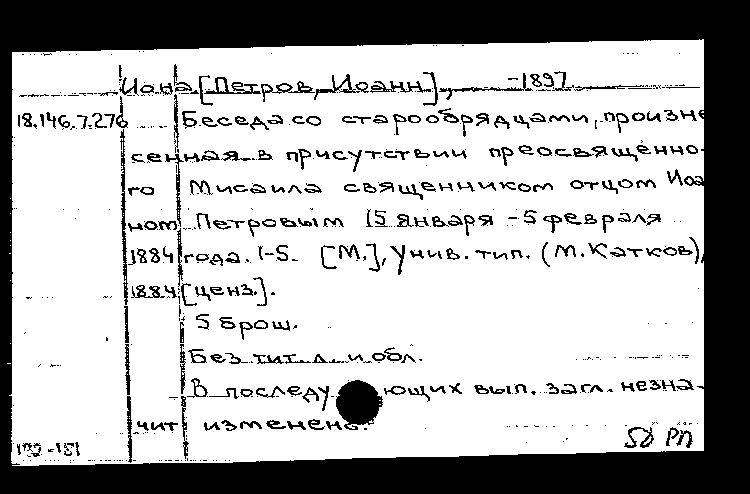 Иона [Петров, Иоанн], -1897
18.146.7.276 Беседа со старообрядцами, произне
сенная в присутствии преосвященно-
го Мисаила священником отцом Иоа
ном Петровым 15 января - 5 февраля
1884 года. 1-5. [М.], Унив. тип. (М. Катков),
1884 [ценз.].
5 брош.
Без тит. л. и обл.
В последующих вып. загл. незна-
чит изменено.